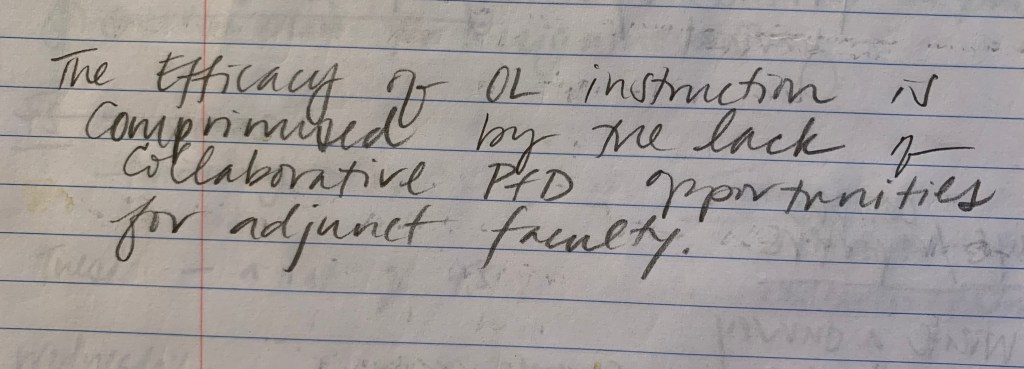 The Efficacy of OL instruction is
Comprimised by the lack of
Collaborative PfD opportunities
for adjunct faculty.